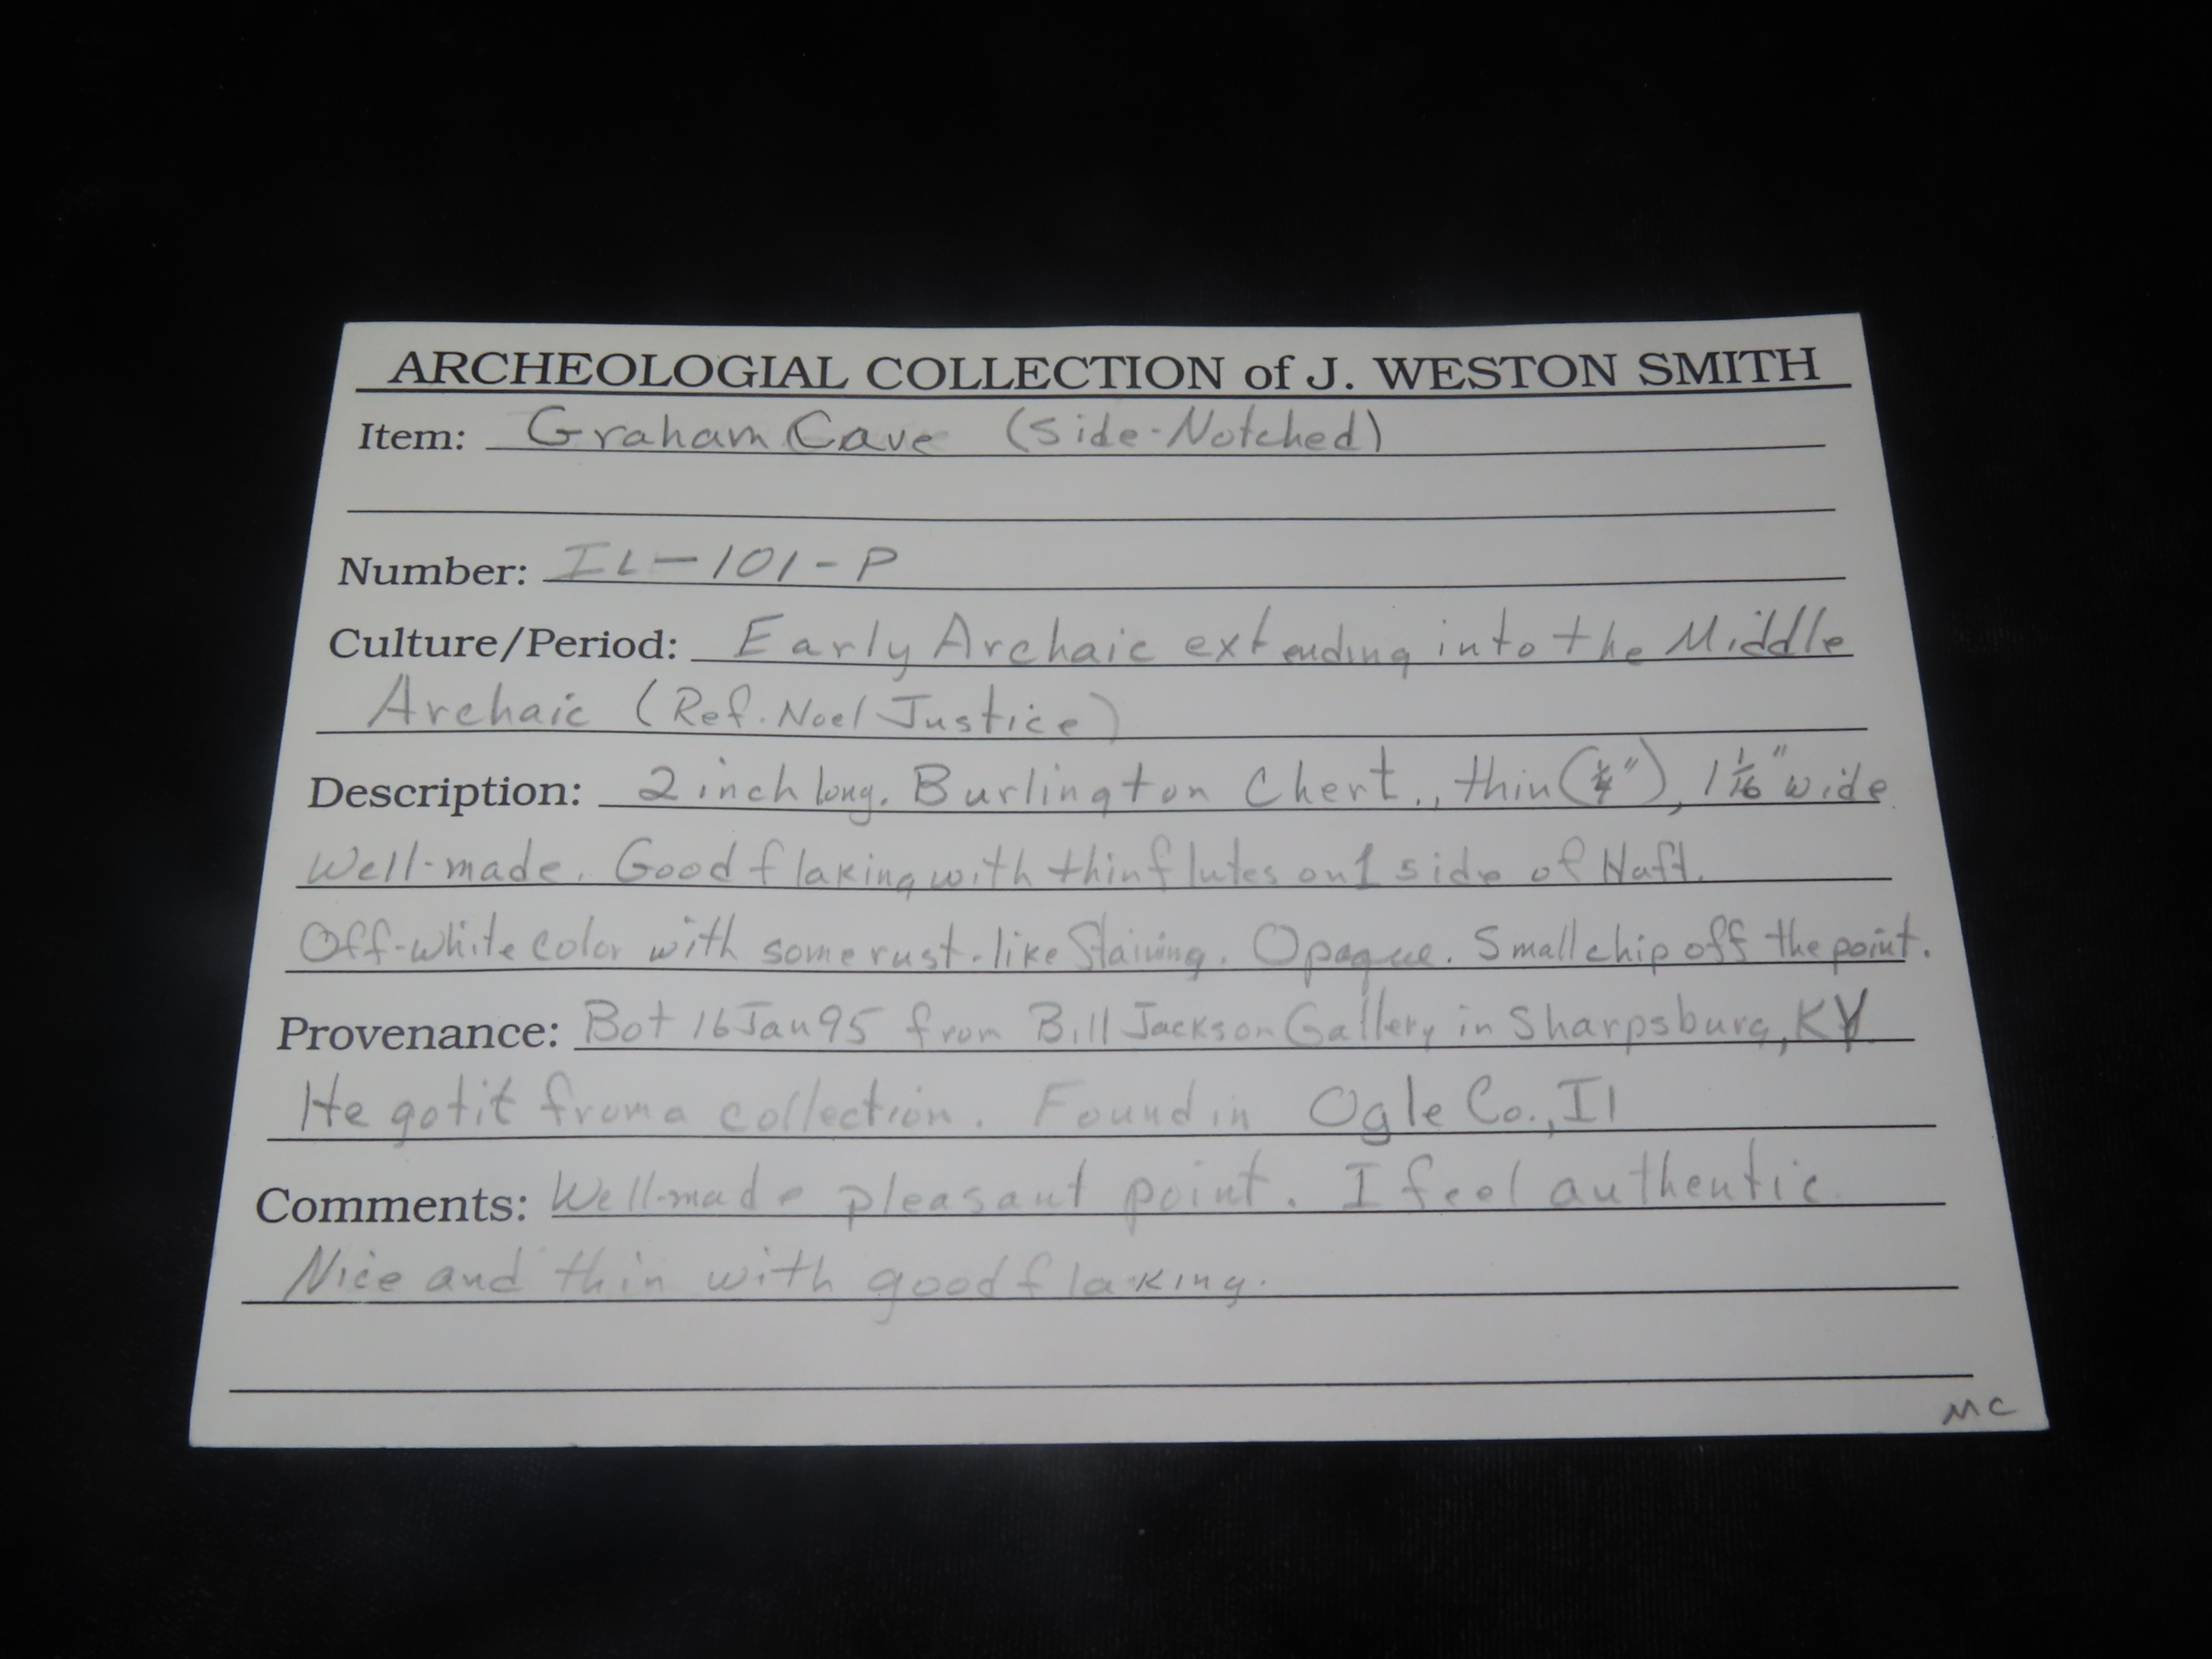 ARCHEOLOGIAL COLLECTION of J. WESTON SMITH
Item: Graham Cave (Side-Notched)
Number: IL-101-P
Culture/Period: Early Archaic extending into the Middle
Archaic (Ref. Noel Justice)
Description: 2 inch long. Burlington Chert., thin (1/4"), 1 1/16" wide
Well-made. Good flaking with thin flutes on 1 side of Haft.
Off-white color with some rust-like Staining. Opaque. Small chip off the point.
Provenance: Bot 16 Jan 95 from Bill Jackson Gallery in Sharpsburg, KY.
He got it from a collection. Found in Ogle Co., Il
Comments: Well-made pleasant point. I feel authentic.
Nice and thin with good flaking.
MC